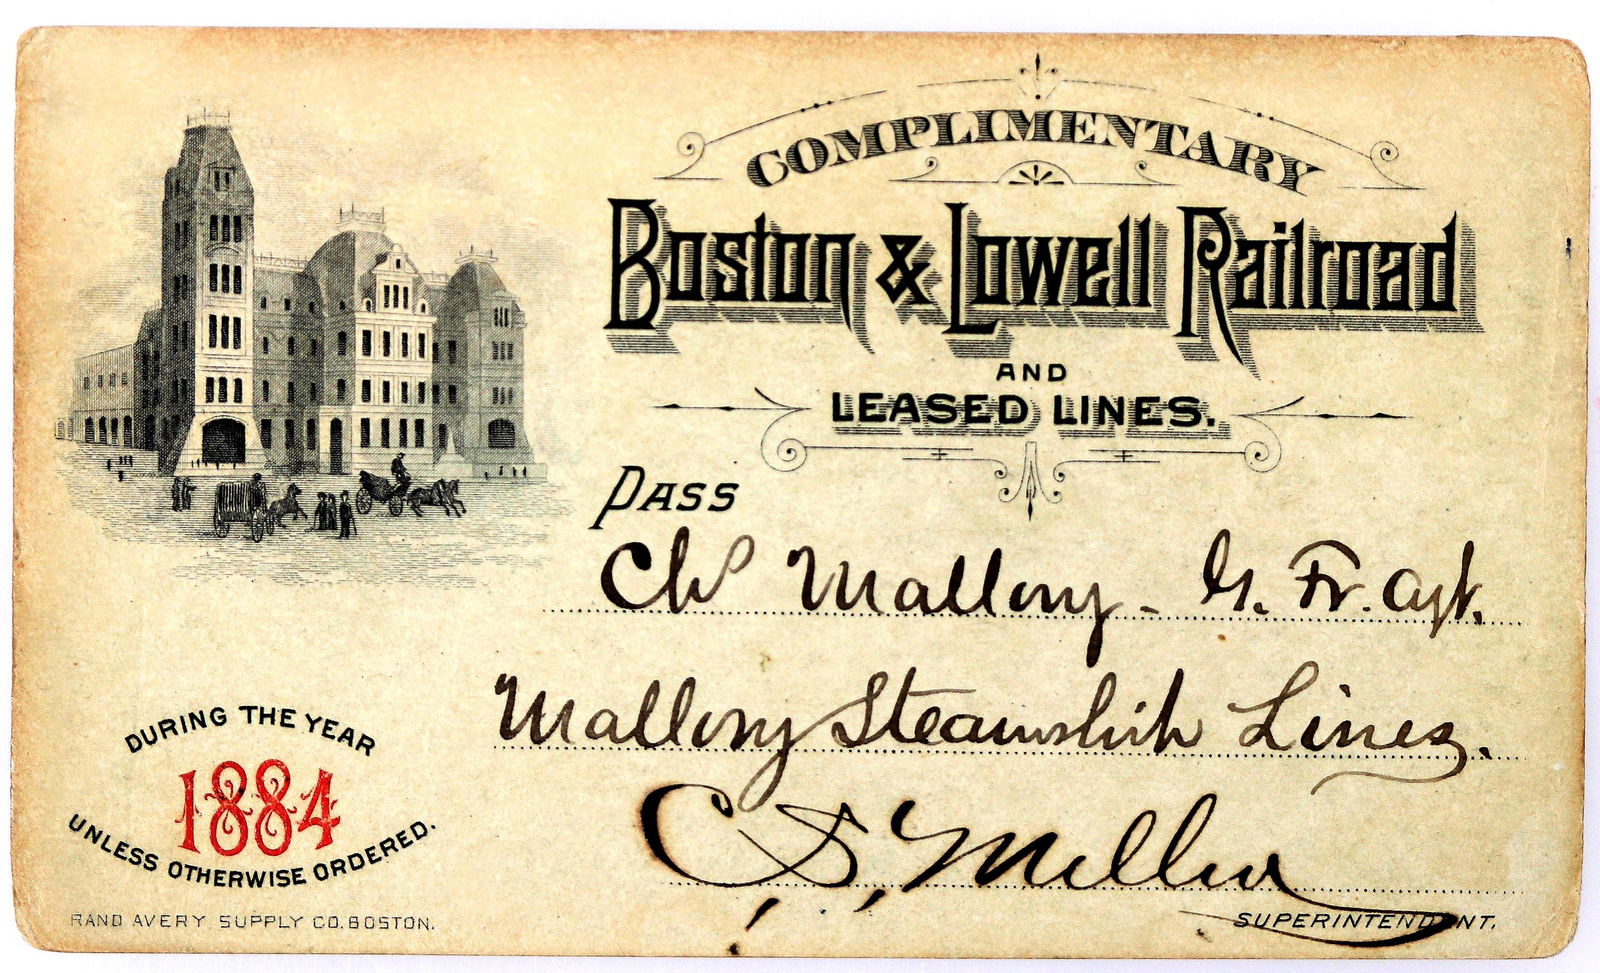 COMPLIMENTARY
Boston & Lowell Railroad
AND
LEASED LINES.
PASS
Chs Mallory - G. Fr. Agt.
Mallory Steamship Lines.
C. S. Mellen
SUPERINTENDENT.
DURING THE YEAR
1884
UNLESS OTHERWISE ORDERED.
RAND AVERY SUPPLY CO. BOSTON.